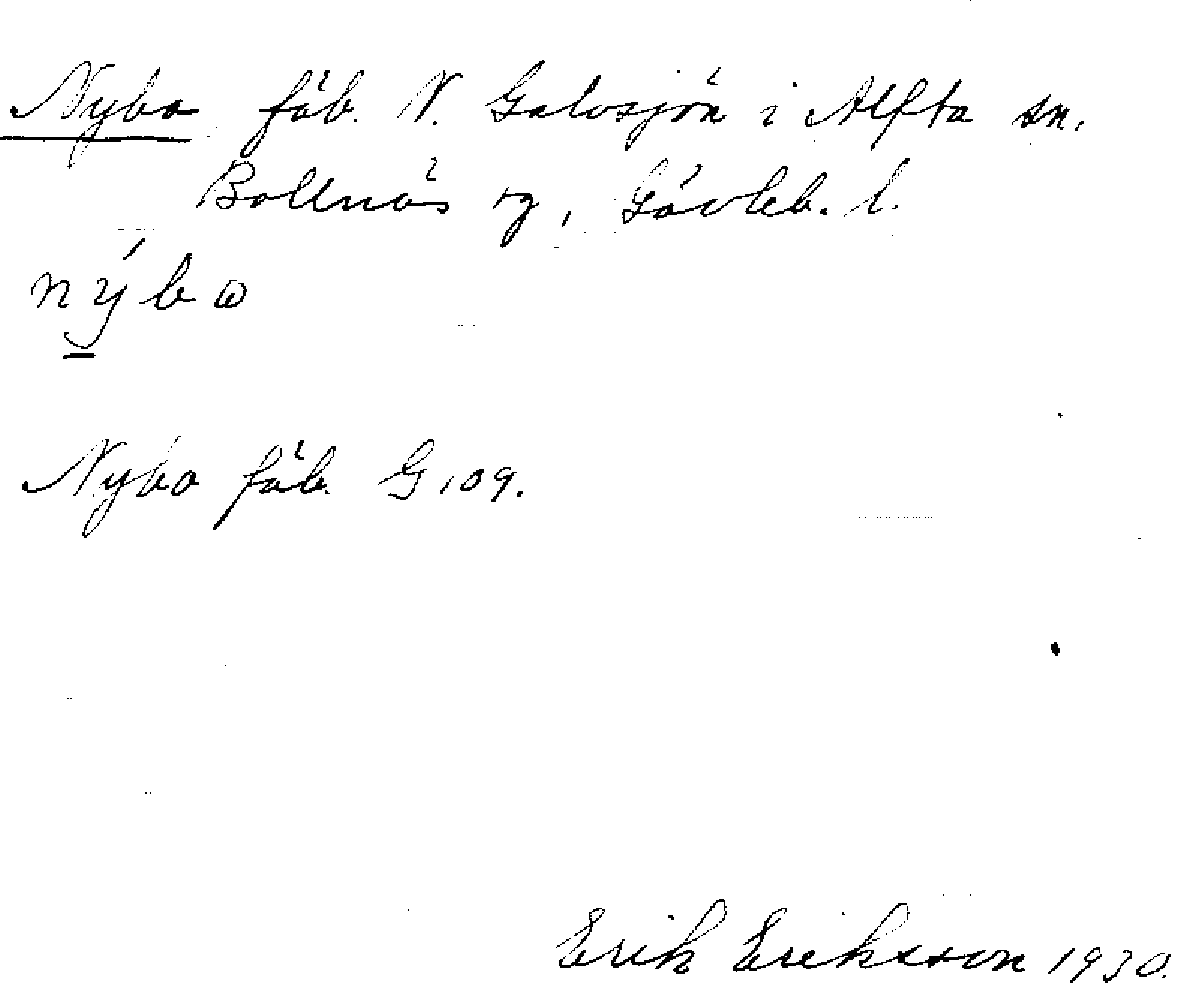 Nybo fäb. N. Galvsjön i Alfta sn.
Bollnäs tg, Gävleb. l.
nýbω
Nybo fäb. G 109.
Erik Eriksson 1930.